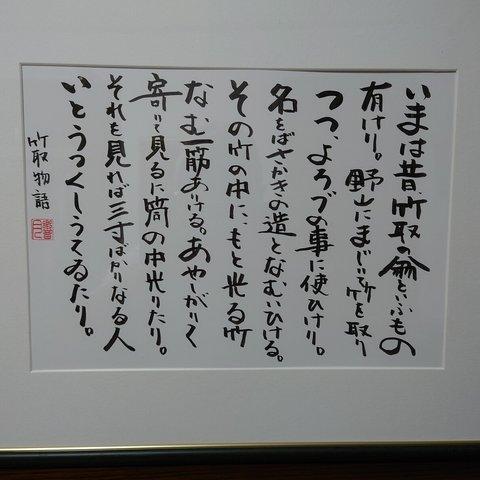 いまは昔、竹取の翁といふもの
有けり。野山にまじりて竹を取り
つつ、よろづの事に使ひけり。
名をばさかきの造となむいひける。
その竹の中に、もと光る竹
なむ一筋ありける。あやしがりて
寄りて見るに筒の中光りたり。
それを見れば三寸ばかりなる人
いとうつくしうてゐたり。
竹取物語